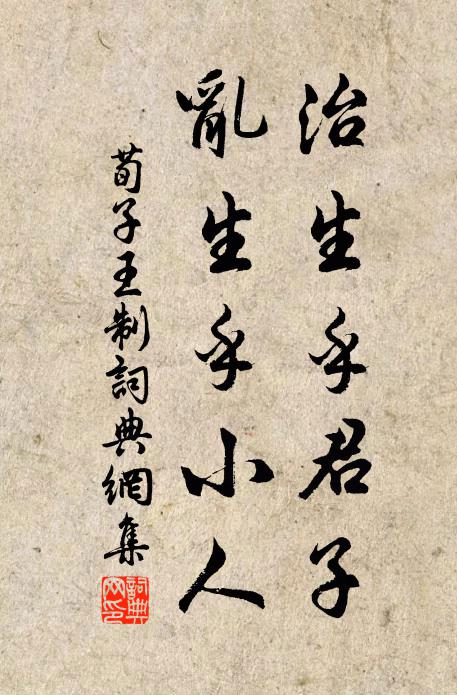 治生乎君子
亂生乎小人
荀子王制詞典網集
詞典網印